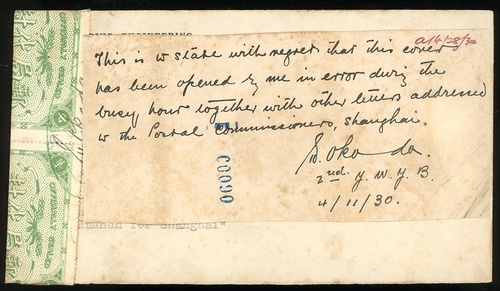 a14/28/30
This is to state with regret that this cover
has been opened by me in error during the
busy hour together with other letters addressed
to the Postal Commissioners, Shanghai.
00090
S. Okada.
2nd Y. W. Y. B.
4/11/30.
launch for Shanghai"
OFFICIALLY SEALED